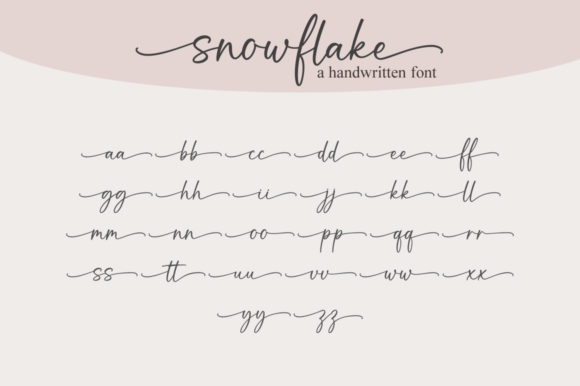 snowflake
a handwritten font
aa bb cc dd ee ff
gg hh ii jj kk ll
mm nn oo pp qq rr
ss tt uu vv ww xx
yy zz